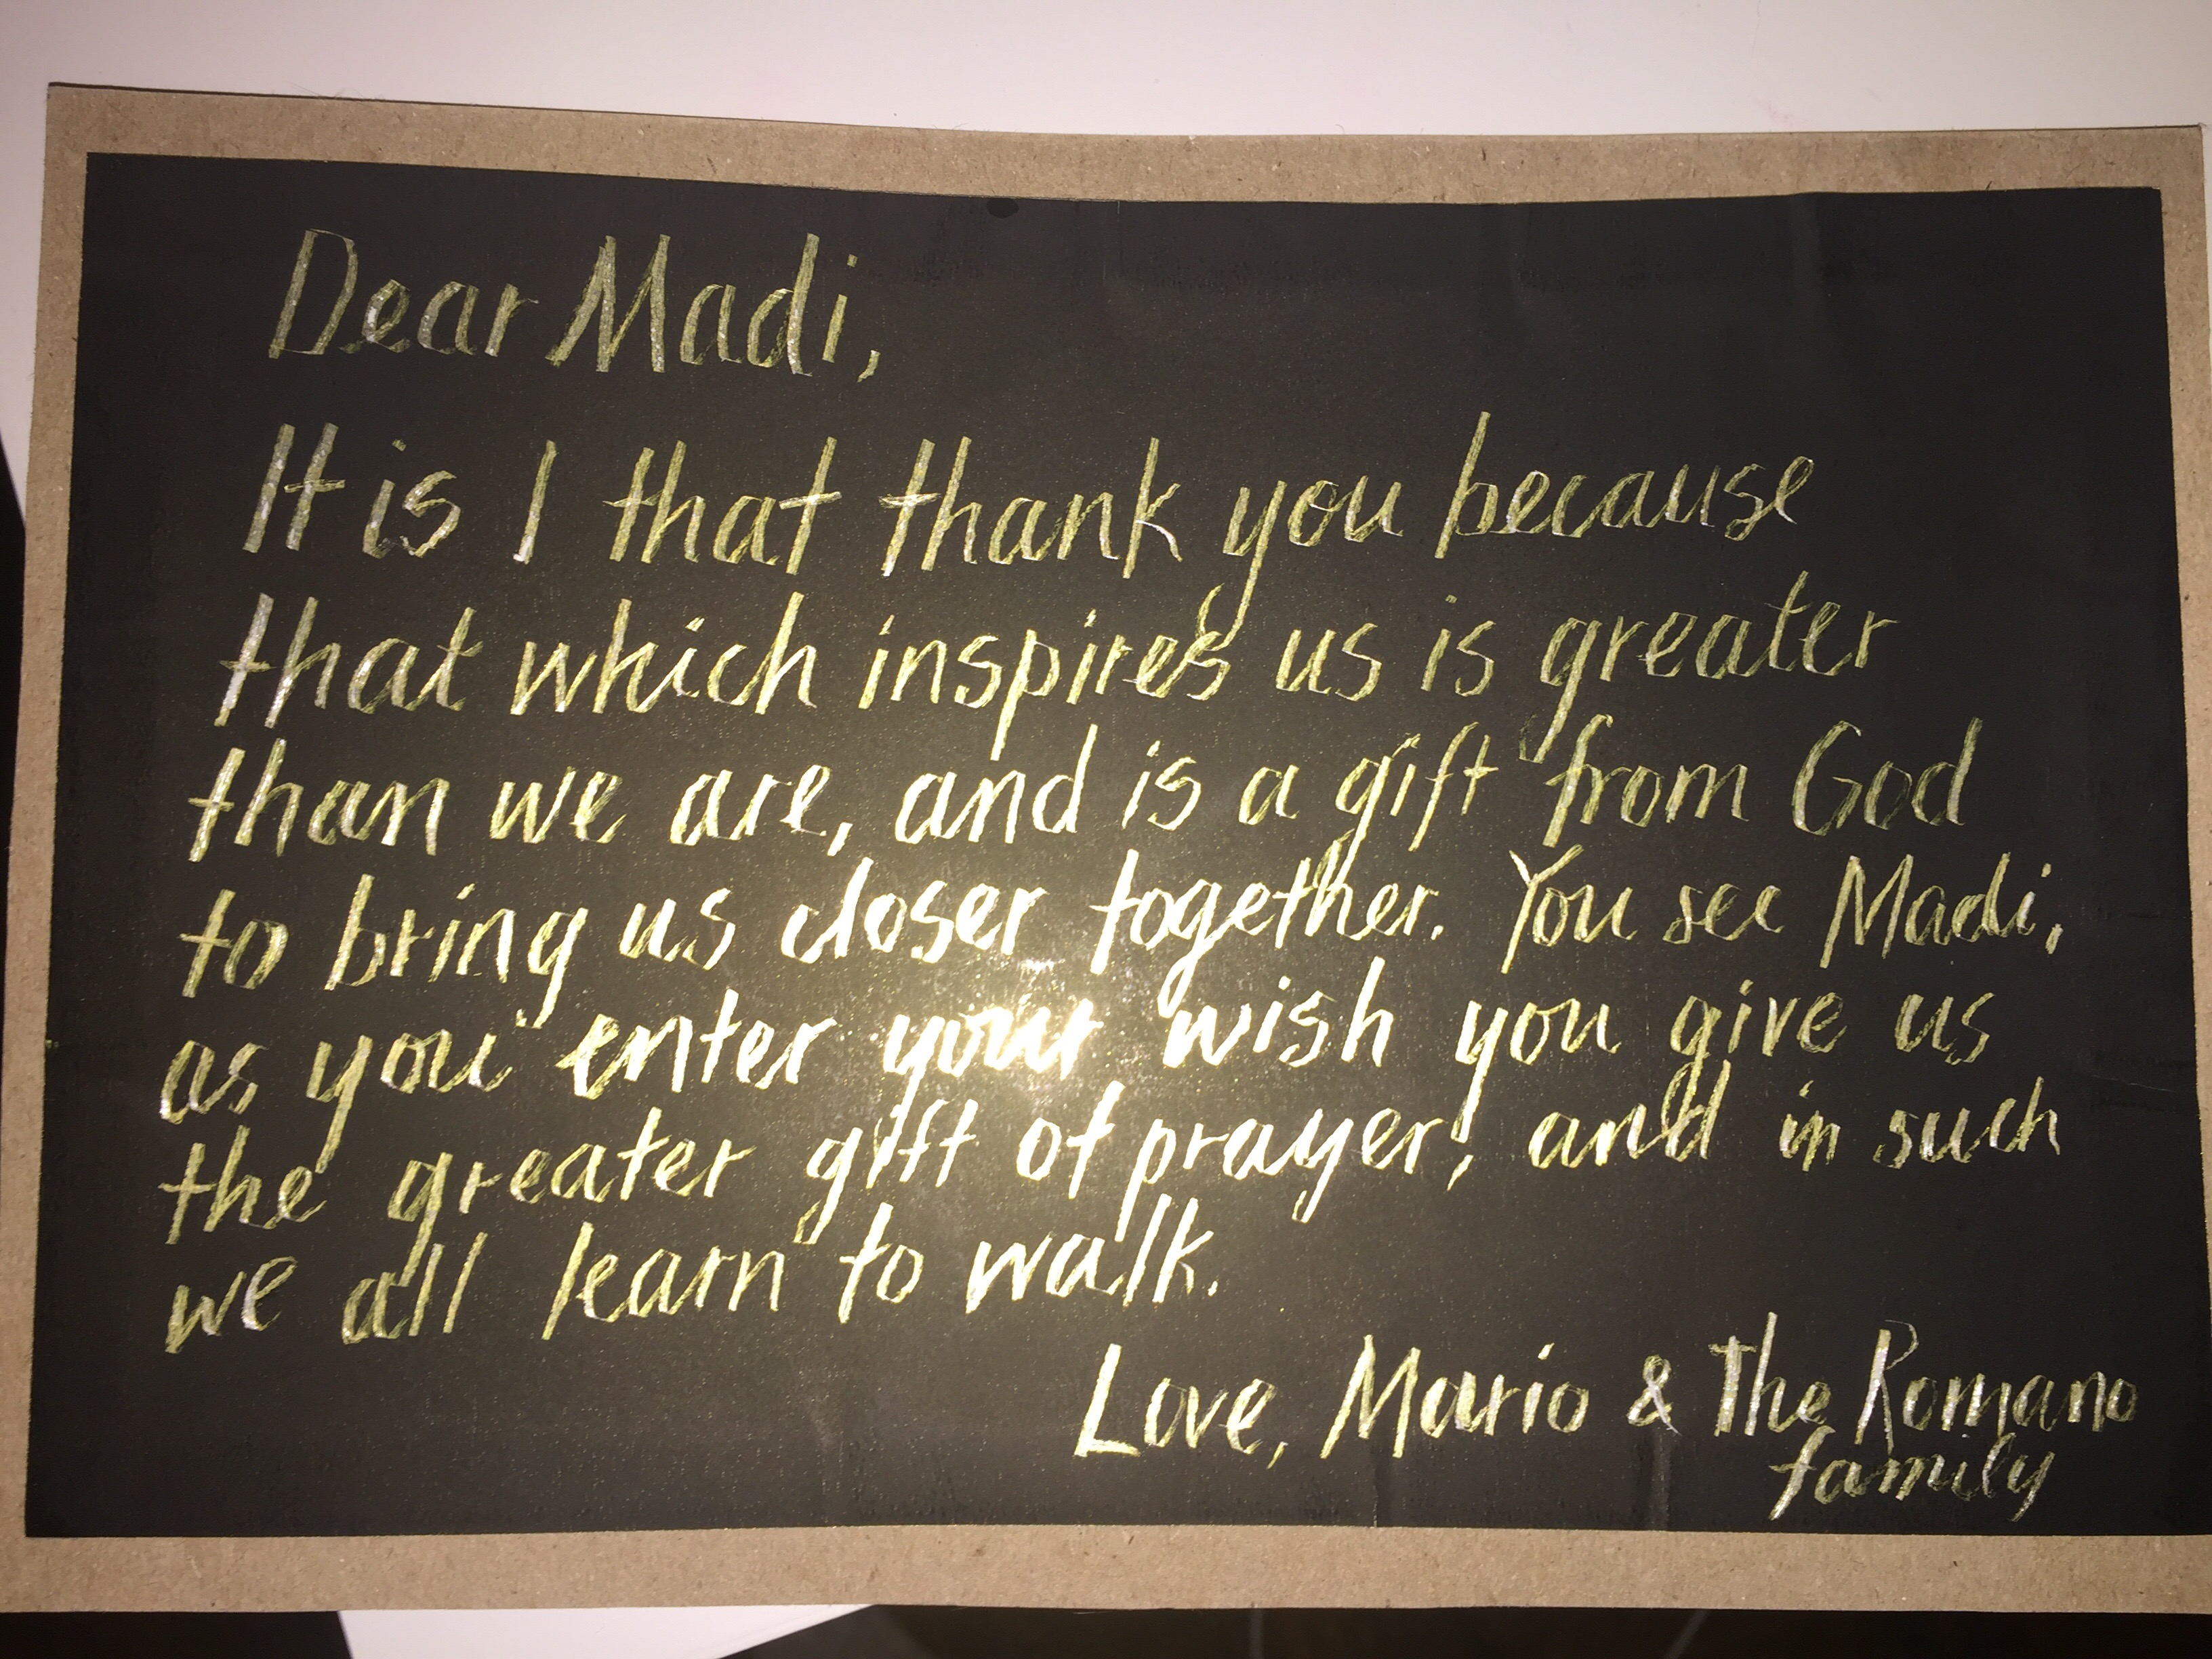 Dear Madi,
It is I that thank you because
that which inspires us is greater
than we are, and is a gift from God
to bring us closer together. You see Madi,
as you enter your wish you give us
the greater gift of prayer, and in such
we all learn to walk.
Love, Mario & The Romano
family